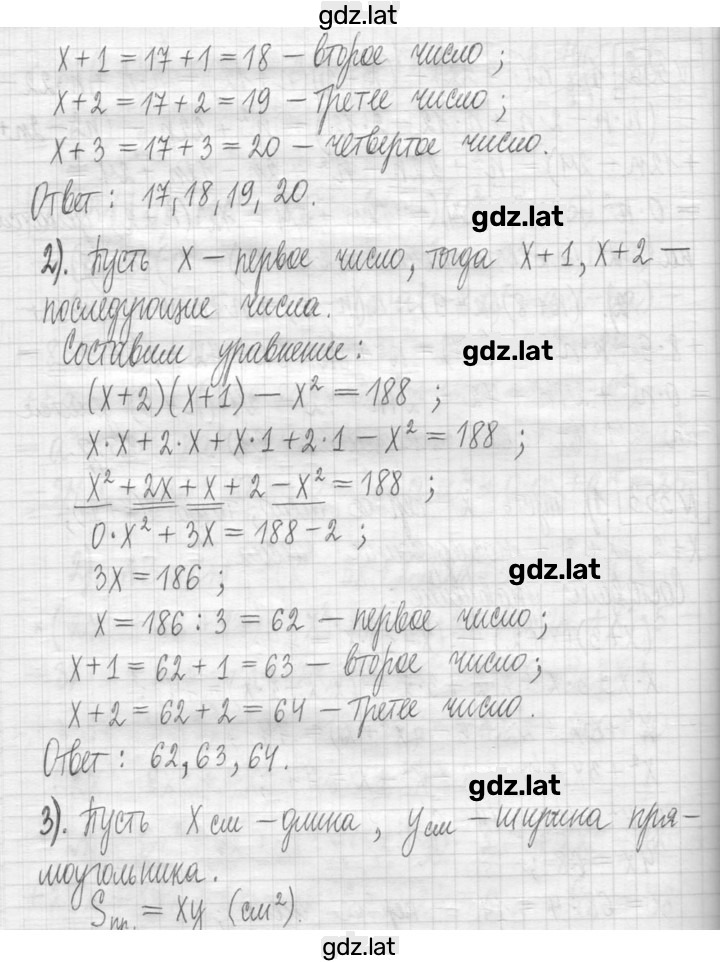 gdz.lat
x + 1 = 17 + 1 = 18 – второе число ;
x + 2 = 17 + 2 = 19 – третее число ;
x + 3 = 17 + 3 = 20 – четвертое число.
Ответ : 17, 18, 19, 20.
gdz.lat
2). Пусть x – первое число, тогда x + 1, x + 2 –
последующие числа.
Составим уравнение :
gdz.lat
(x + 2)(x + 1) – x² = 188 ;
x · x + 2 · x + x · 1 + 2 · 1 – x² = 188 ;
x² + 2x + x + 2 – x² = 188 ;
0 · x² + 3x = 188 – 2 ;
gdz.lat
3x = 186 ;
x = 186 : 3 = 62 – первое число ;
x + 1 = 62 + 1 = 63 – второе число ;
x + 2 = 62 + 2 = 64 – третее число.
Ответ : 62, 63, 64.
gdz.lat
3). Пусть x см – длина, y см – ширина пря–
моугольника.
Sпп. = xy (см²).
gdz.lat